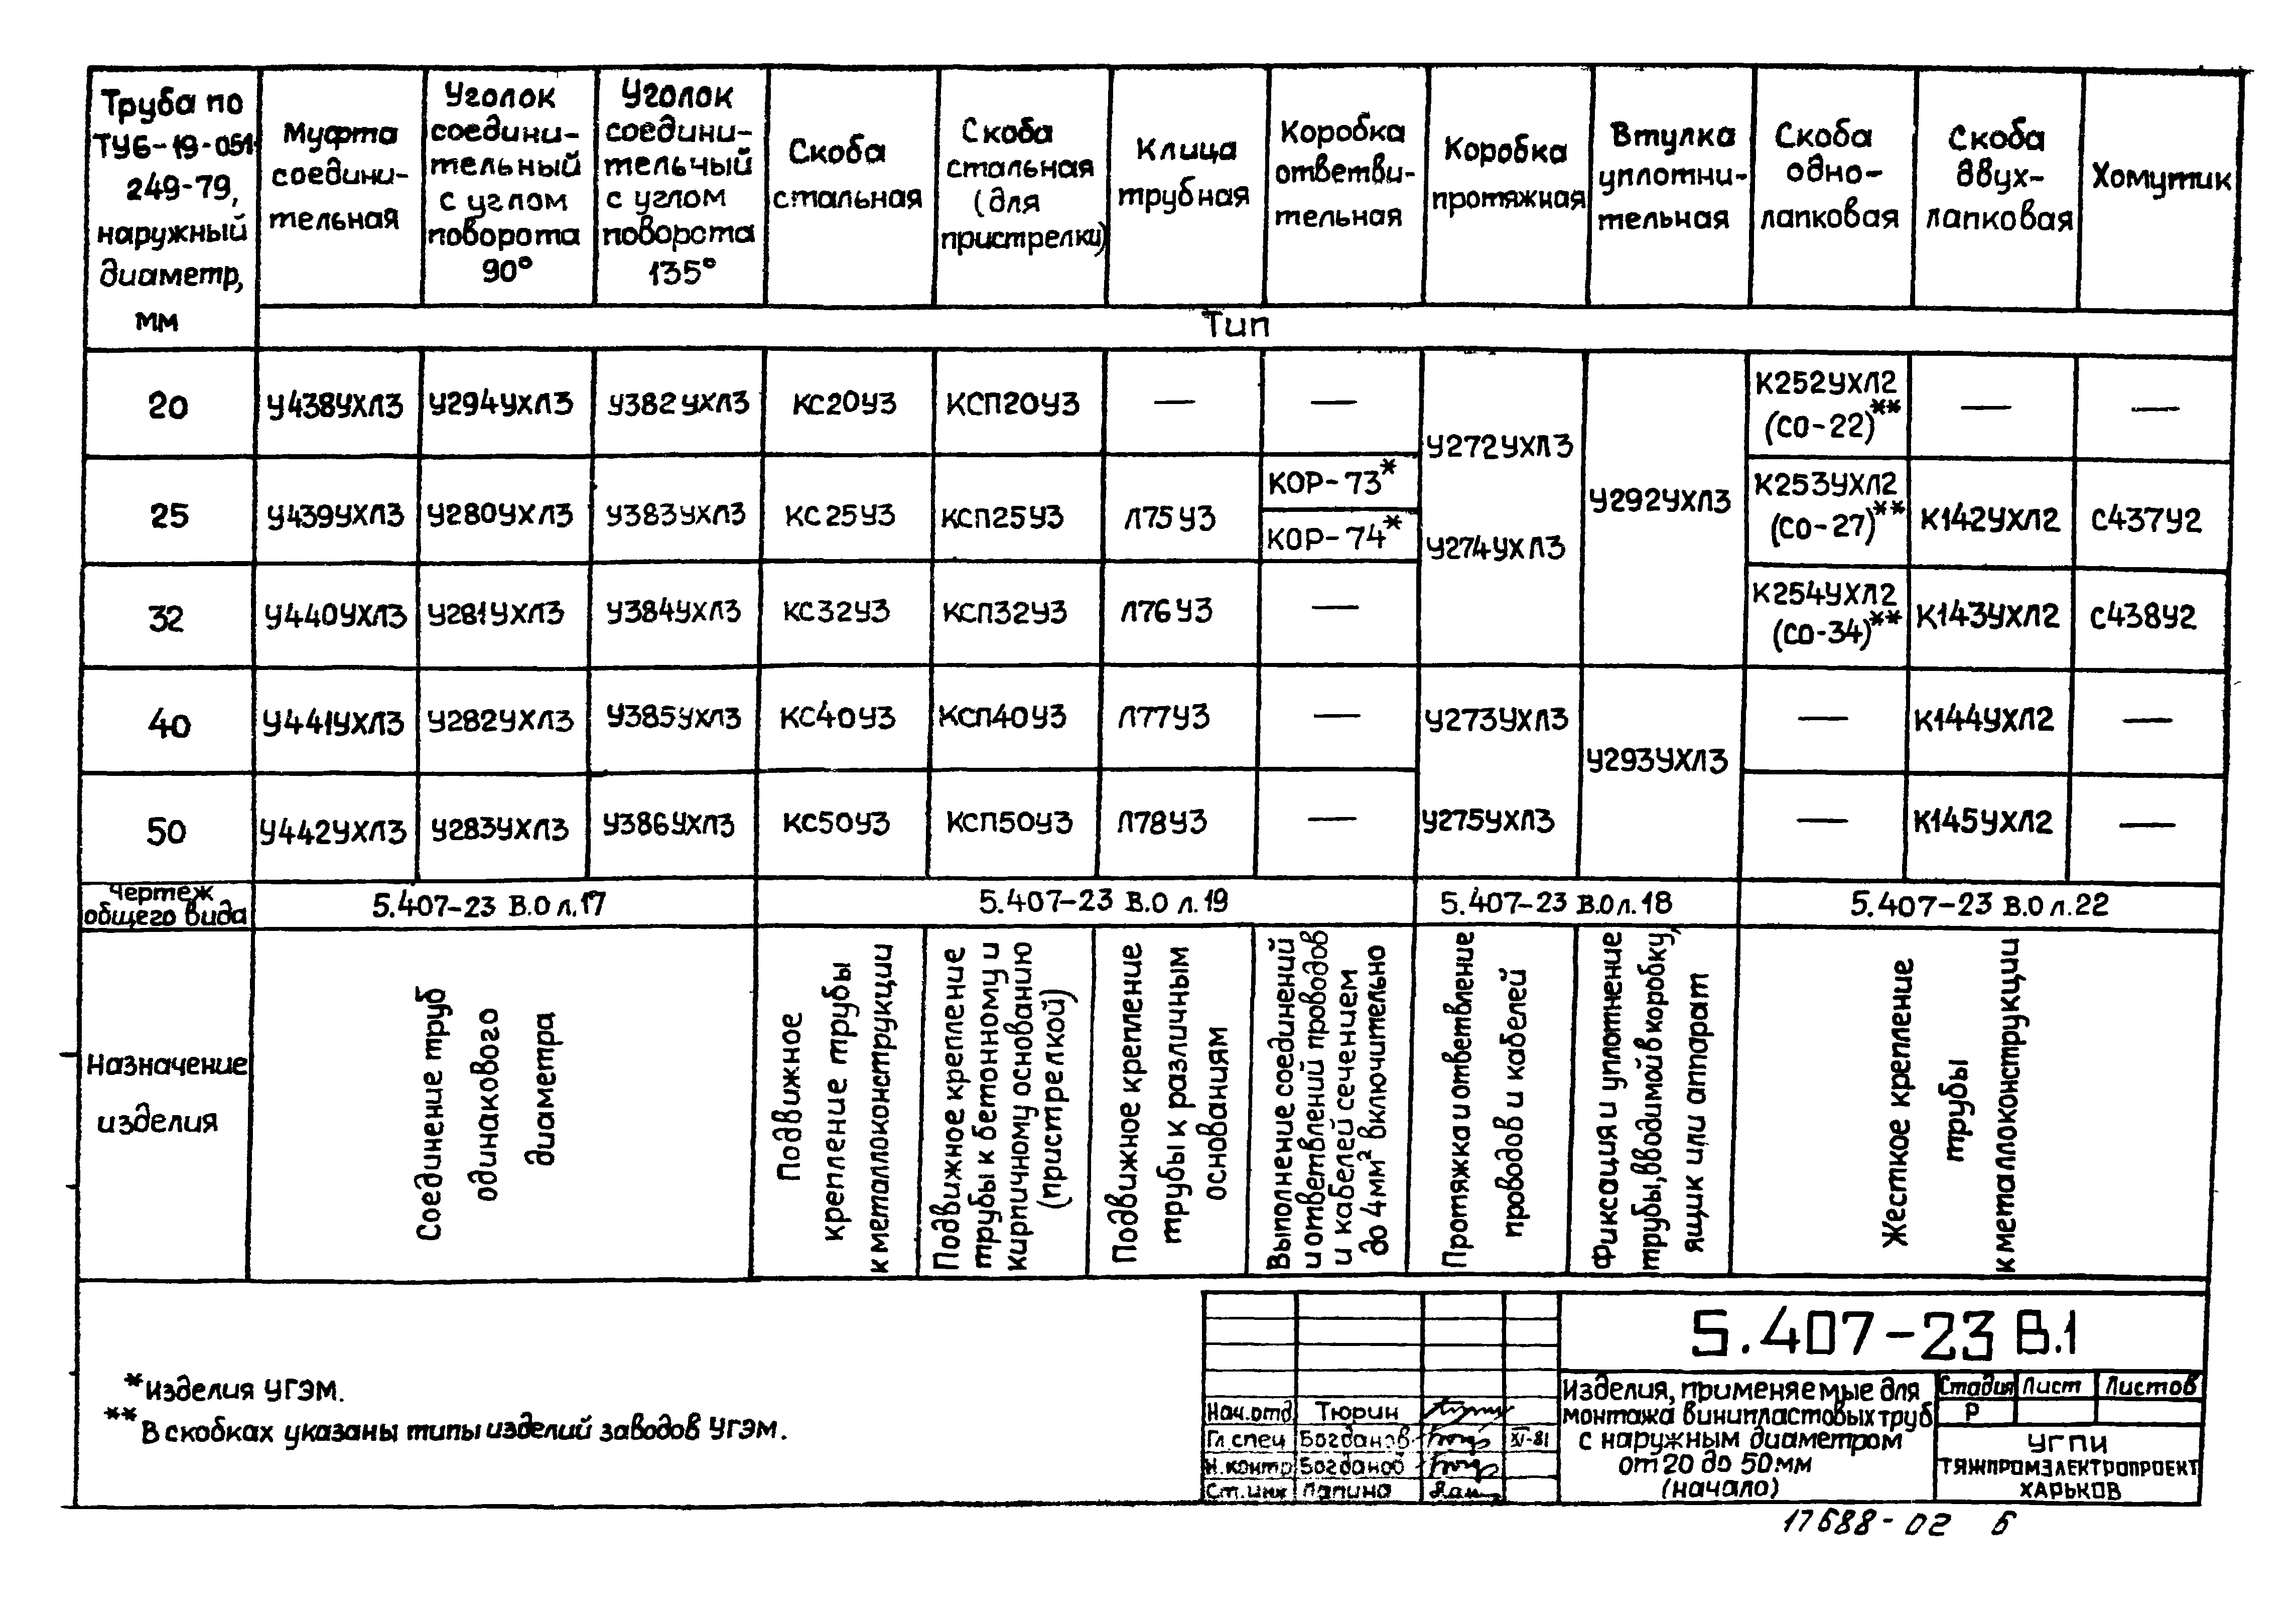 Труба по
ТУ6-19-051-
249-79,
наружный
диаметр,
мм
Муфта
соедини-
тельная
Уголок
соедини-
тельный
с углом
поворота
90°
Уголок
соедини-
тельный
с углом
поворота
135°
Скоба
стальная
Скоба
стальная
(для
пристрелки)
Клица
трубная
Коробка
ответви-
тельная
Коробка
протяжная
Втулка
уплотни-
тельная
Скоба
одно-
лапковая
Скоба
двух-
лапковая
Хомутик
Тип
20 У438УХЛ3 У294УХЛ3 У382УХЛ3 КС20У3 КСП20У3 — — К252УХЛ2 (СО-22)** — —
У272УХЛ3
25 У439УХЛ3 У280УХЛ3 У383УХЛ3 КС25У3 КСП25У3 Л75У3 КОР-73* КОР-74* У292УХЛ3 К253УХЛ2 (СО-27)** К142УХЛ2 С437У2
У274УХЛ3
32 У440УХЛ3 У281УХЛ3 У384УХЛ3 КС32У3 КСП32У3 Л76У3 — К254УХЛ2 (СО-34)** К143УХЛ2 С438У2
40 У441УХЛ3 У282УХЛ3 У385УХЛ3 КС40У3 КСП40У3 Л77У3 — У273УХЛ3 — К144УХЛ2 —
У293УХЛ3
50 У442УХЛ3 У283УХЛ3 У386УХЛ3 КС50У3 КСП50У3 Л78У3 — У275УХЛ3 — К145УХЛ2 —
Чертеж
общего вида
5.407-23 В.0 л.17 5.407-23 В.0 л.19 5.407-23 В.0 л.18 5.407-23 В.0 л.22
Назначение
изделия
Соединение труб
одинакового
диаметра
Подвижное
крепление трубы
к металлоконструкции
Подвижное крепление
трубы к бетонному и
кирпичному основанию
(пристрелкой)
Подвижное крепление
трубы к различным
основаниям
Выполнение соединений
и ответвлений проводов
и кабелей сечением
до 4мм² включительно
Протяжка и ответвление
проводов и кабелей
Фиксация и уплотнение
трубы, вводимой в коробку,
ящик или аппарат
Жесткое крепление
трубы
к металлоконструкции
*Изделия УГЭМ.
**В скобках указаны типы изделий заводов УГЭМ.
5.407-23 В.1
Изделия, применяемые для
монтажа винипластовых труб
с наружным диаметром
от 20 до 50мм
(начало)
Стадия Лист Листов
Р
УГПИ
ТЯЖПРОМЭЛЕКТРОПРОЕКТ
ХАРЬКОВ
Нач.отд Тюрин
Гл.спец Богданов XI-81
Н.контр Богданов
Ст.инж Лапина
17688-02 6